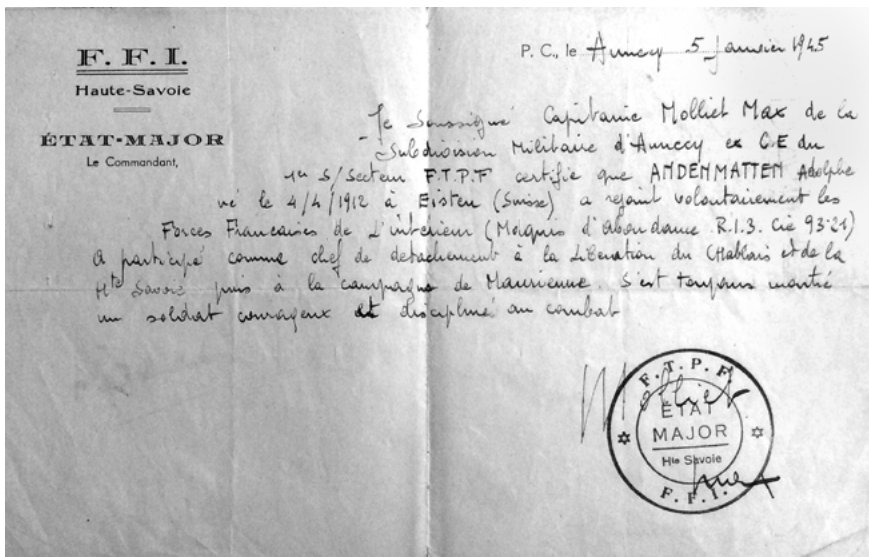 F. F. I.
Haute-Savoie
ÉTAT-MAJOR
Le Commandant,
P. C., le Annecy 5 Janvier 1945
Je Soussigné Capitaine Molliet Max de la
Subdivision Militaire d'Annecy ex C.E du
1er S/Secteur F.T.P.F certifie que ANDENMATTEN Adolphe
né le 4/4/1912 à Eisten (Suisse) a rejoint volontairement les
Forces Françaises de L'intérieur (Maquis d'abondance R.I.3. Cie 93-21)
A participé comme chef de detachement à la Liberation du Chablais et de la
Hte Savoie puis à la campagne de Maurienne. S'est toujours montré
un soldat courageux et discipliné au combat
Molliet
Max
F. T. P. F.
ÉTAT
MAJOR
Hte Savoie
F. F. I.